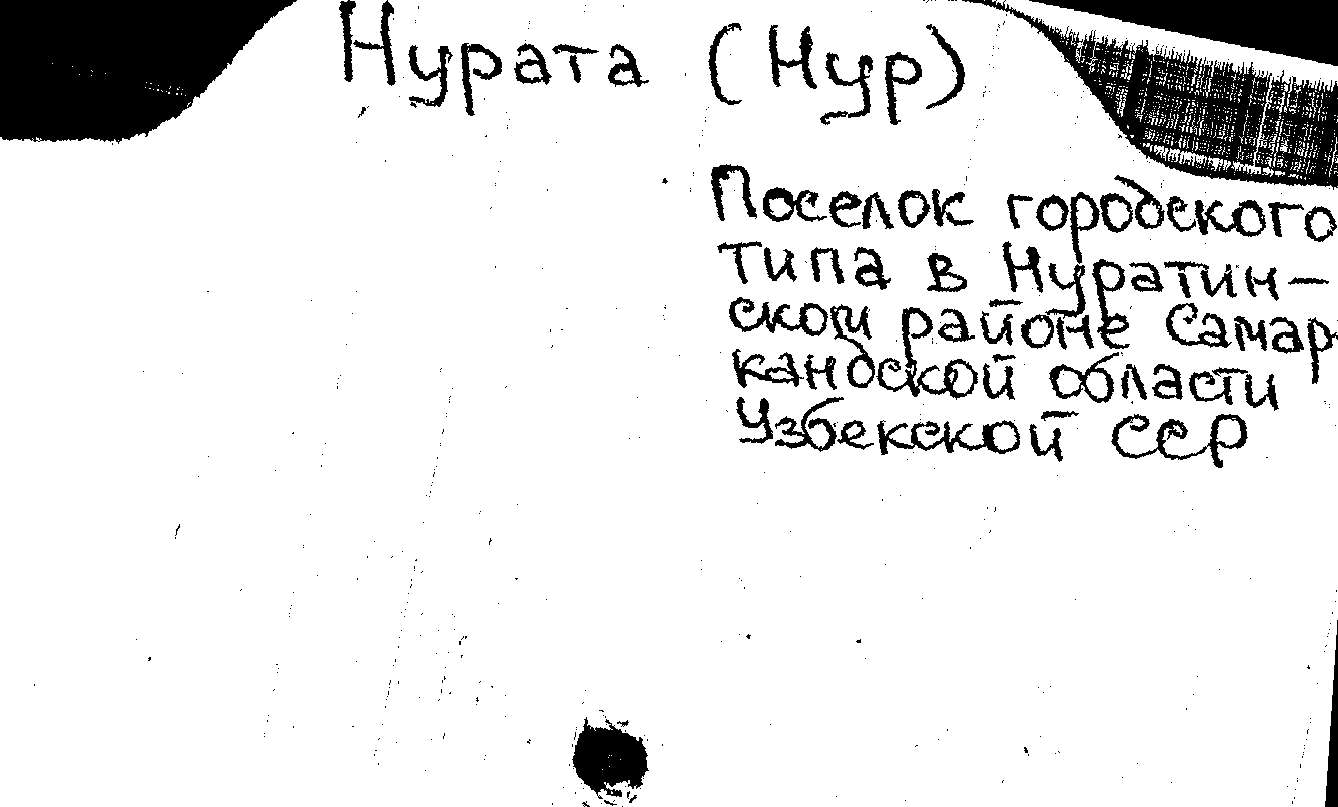 Нурата (Нур)
Поселок городского
типа в Нуратин-
ском районе Самар-
кандской области
Узбекской ССР